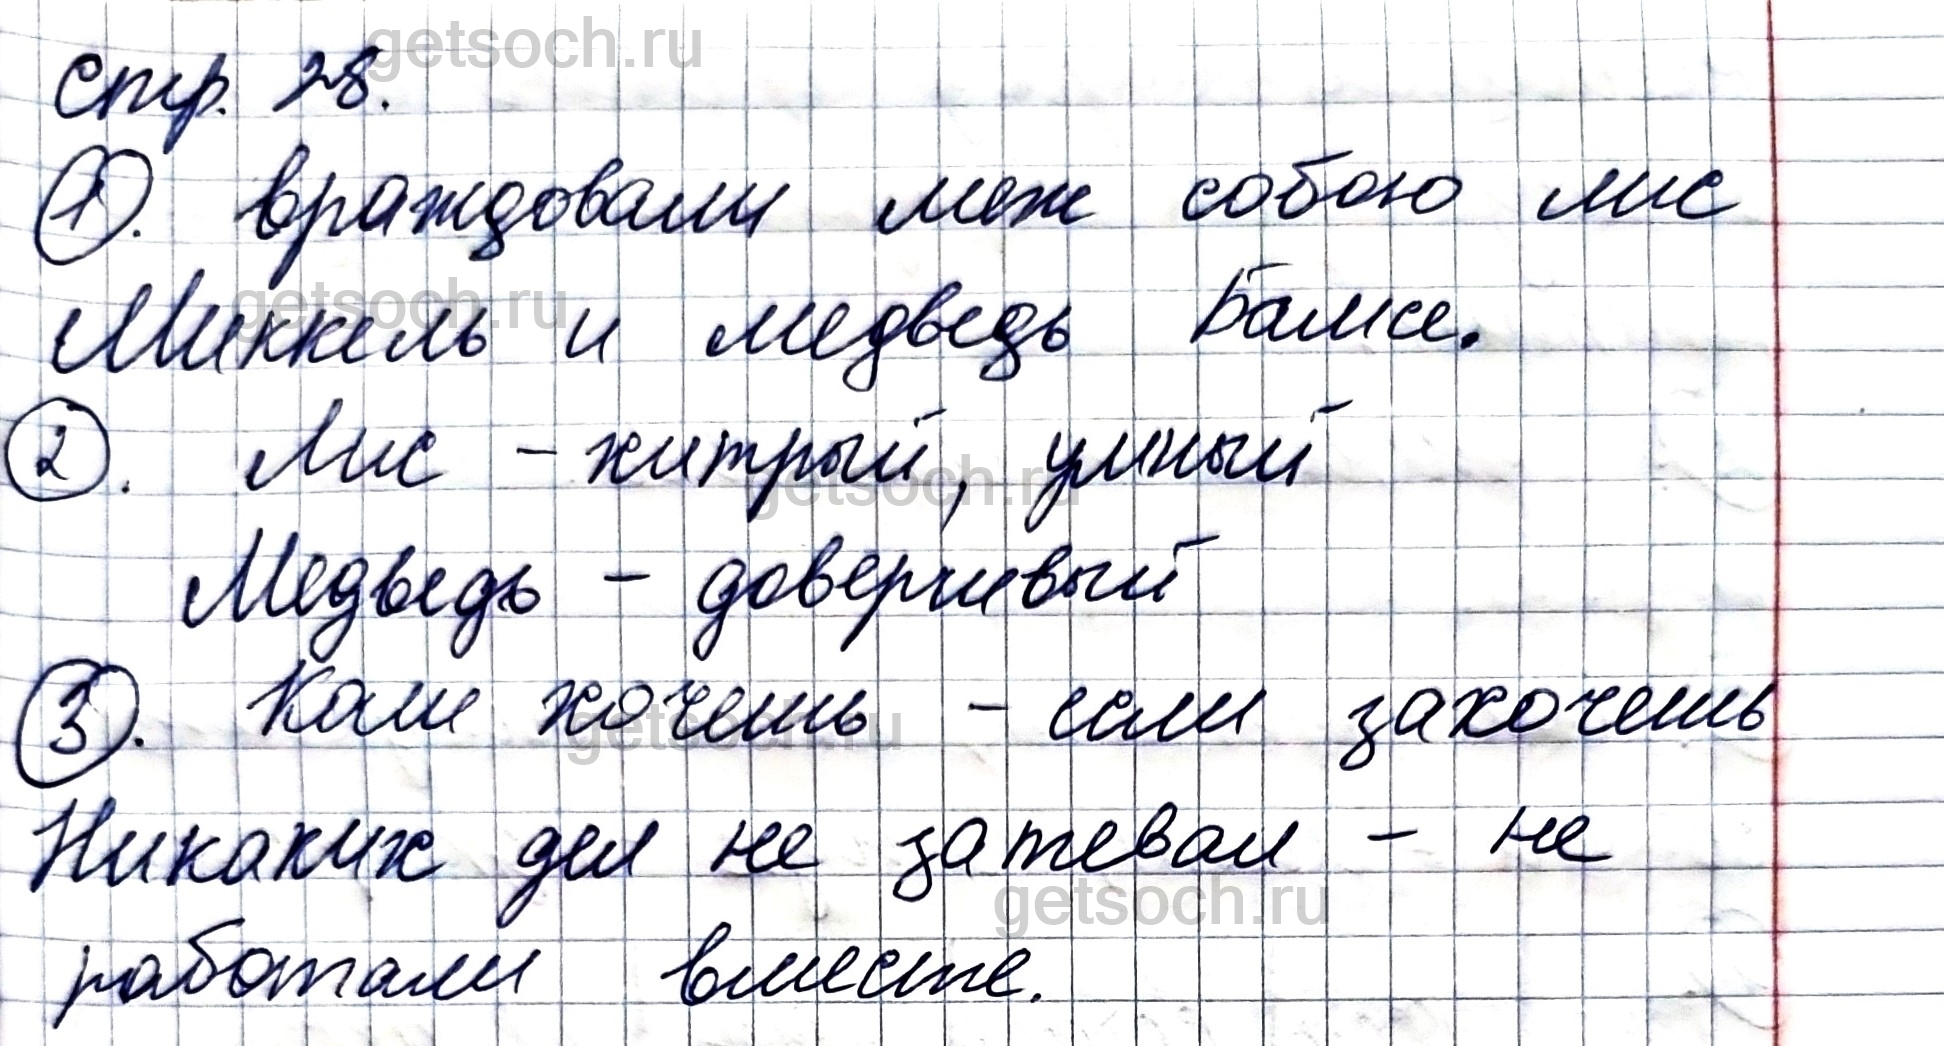 getsoch.ru
стр. 28.
1. враждовали меж собою лис
getsoch.ru
Миккель и медведь Бамсе.
2. Лис - хитрый, умный
getsoch.ru
Медведь - доверчивый
3. Коли хочешь - если захочешь
getsoch.ru
Никаких дел не затевал - не
getsoch.ru
работали вместе.